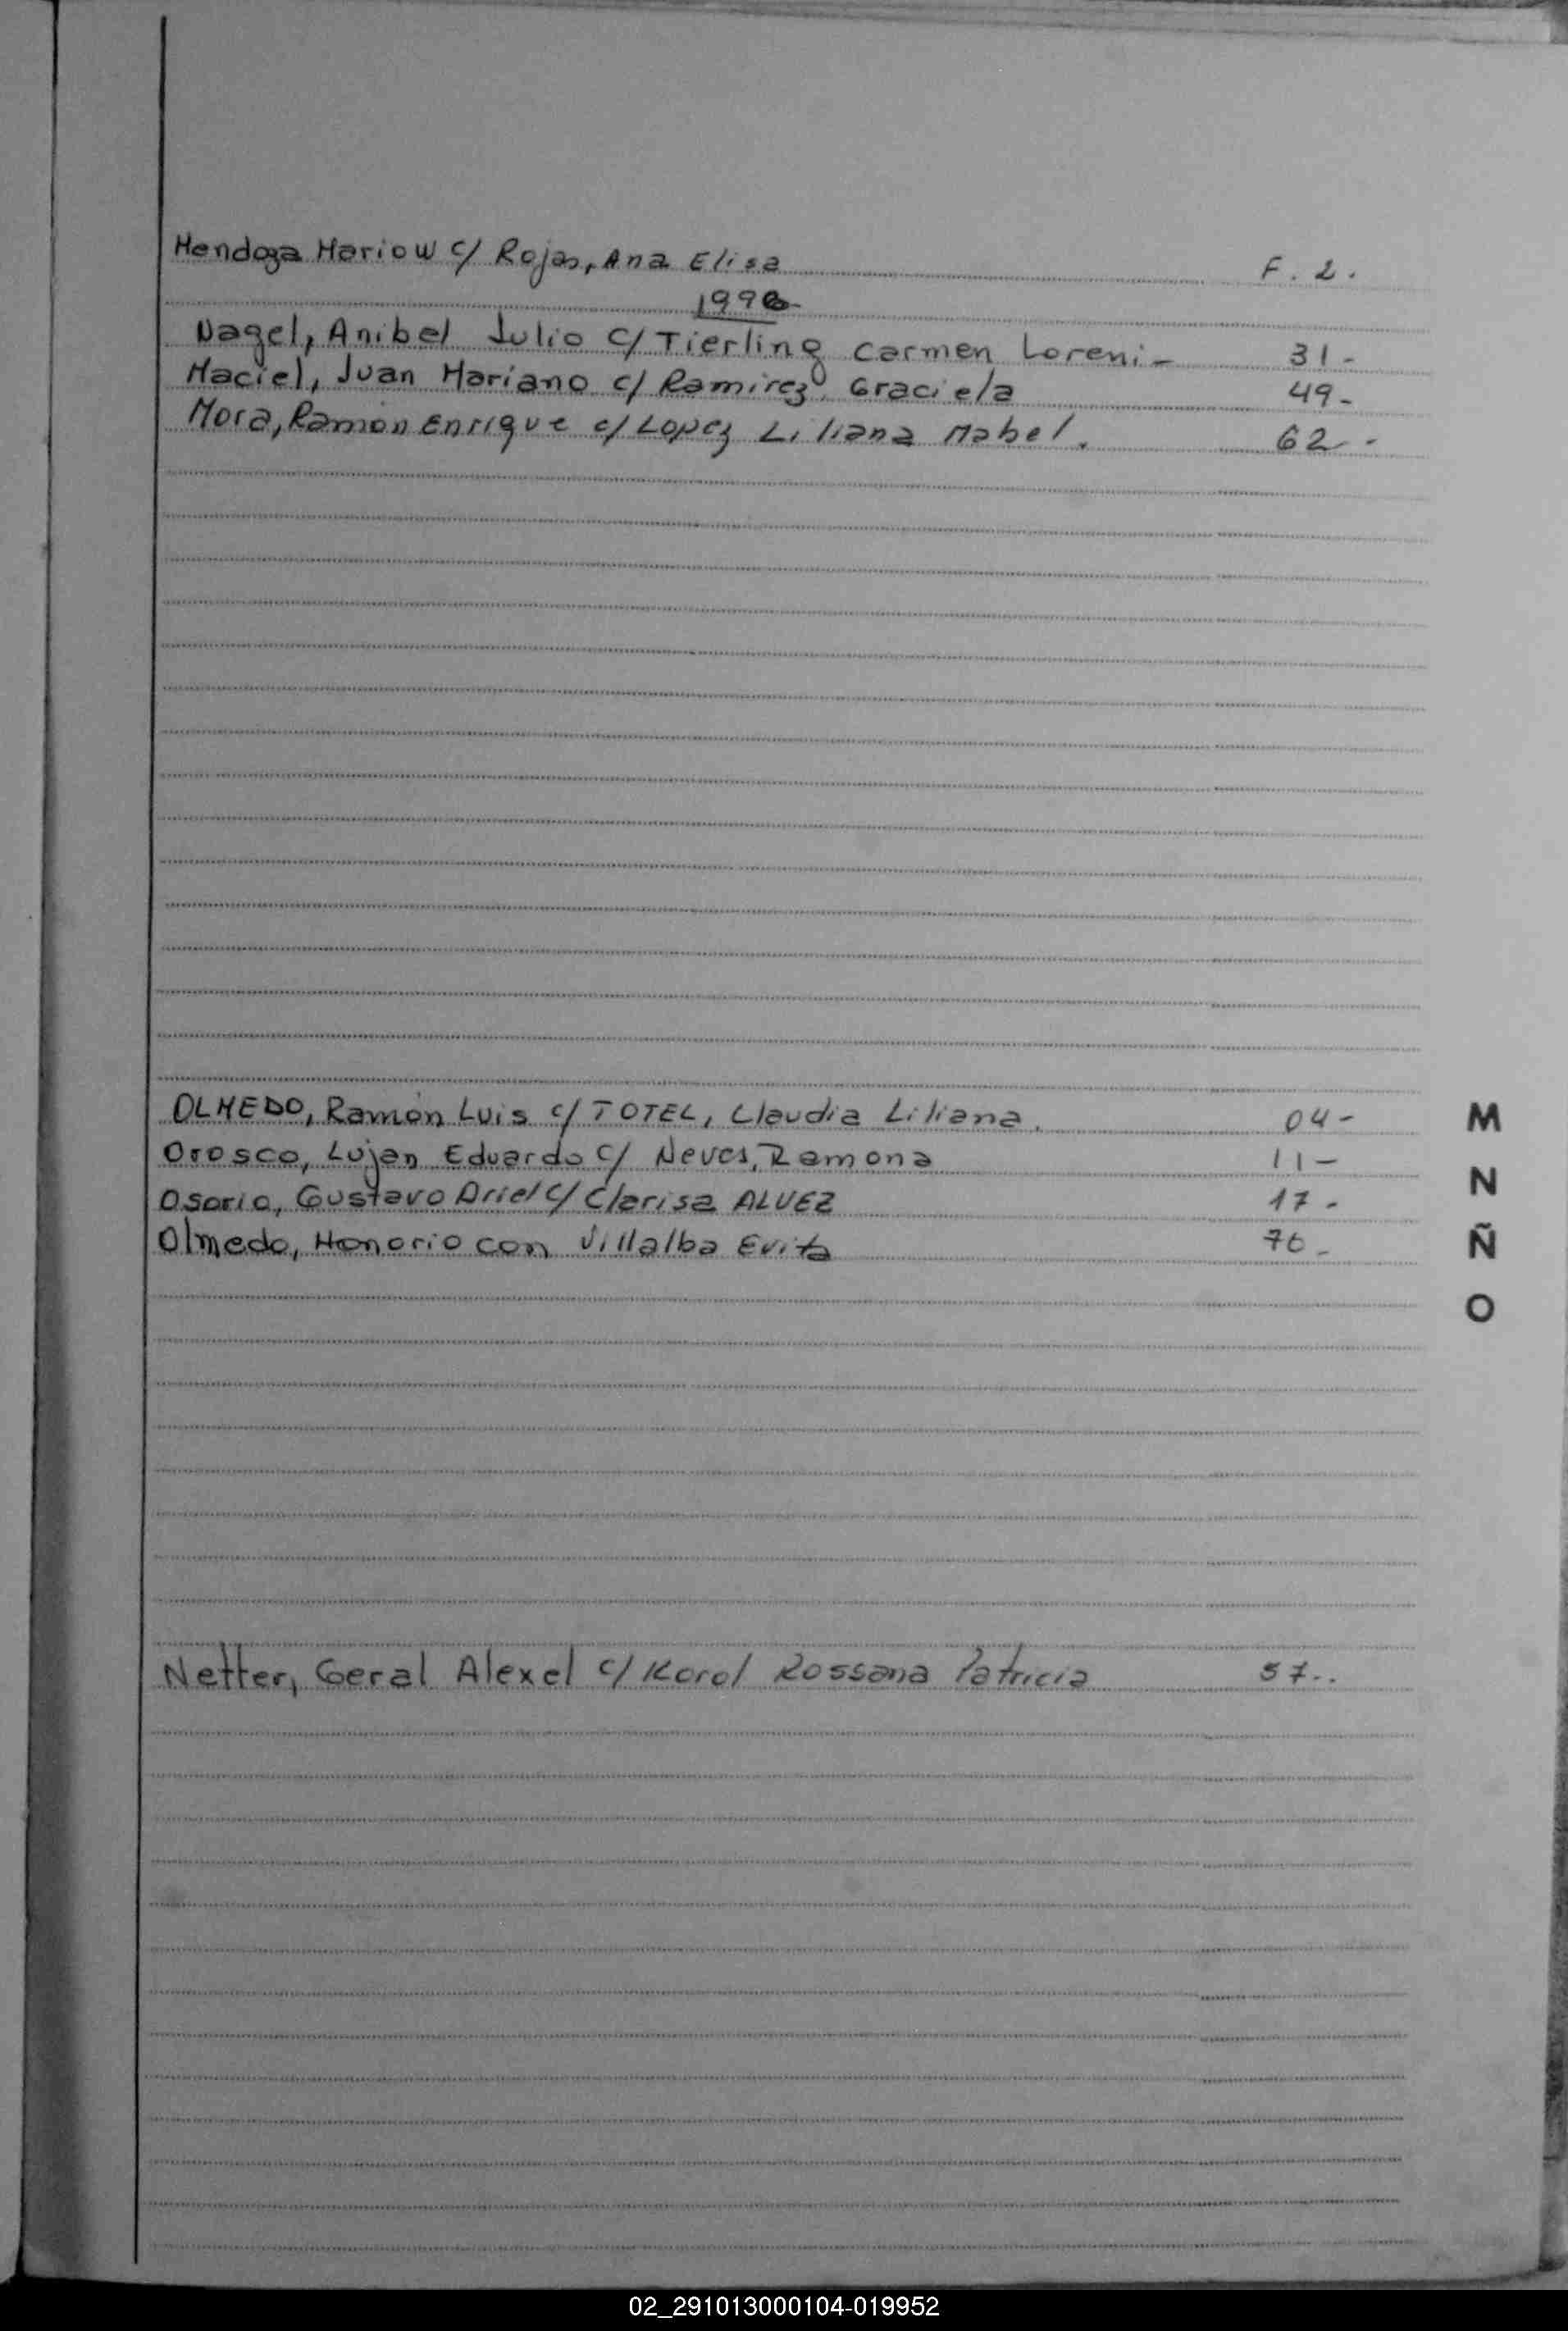 Mendoza Mariow c/ Rojas, Ana Elisa F. 2.
Nagel, Anibel Julio c/ Tierling Carmen Loreni - 31 -
Maciel, Juan Mariano c/ Ramirez, Graciela 49 -
Mora, Ramón Enrique c/ Lopez Liliana Mabel. 62 - -
OLMEDO, Ramón Luis c/ TOTEL, Claudia Liliana. 04 -
Orosco, Lujan Eduardo c/ Neves, Ramona 11 -
Osorio, Gustavo Ariel c/ Clarisa ALVEZ 17 -
Olmedo, Honorio con Villalba Evita 76 -
M
N
Ñ
O
Netter, Geral Alexel c/ Korol Rossana Patricia 57..
02_291013000104-019952